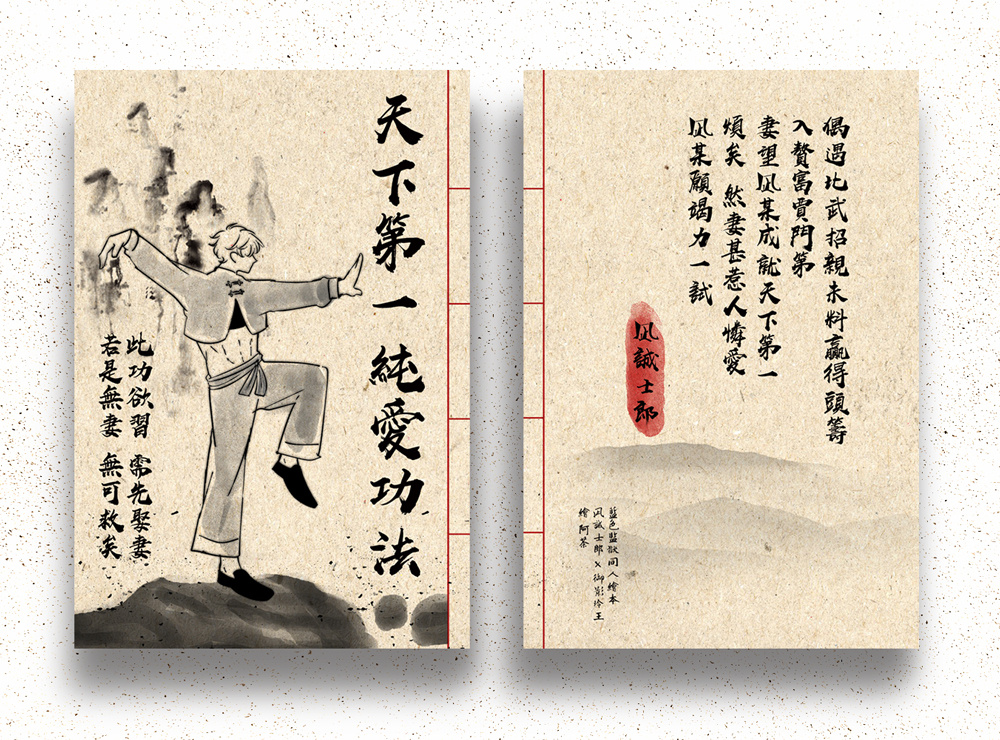 天下第一純愛功法
此功欲習 需先娶妻
若是無妻 無可救矣
偶遇比武招親未料贏得頭籌
入贅富貴門第
妻望凪某成就天下第一
煩矣 然妻甚惹人憐愛
凪某願竭力一試
凪誠士郎
藍色監獄同人繪本
凪誠士郎×御影玲王
繪 阿茶